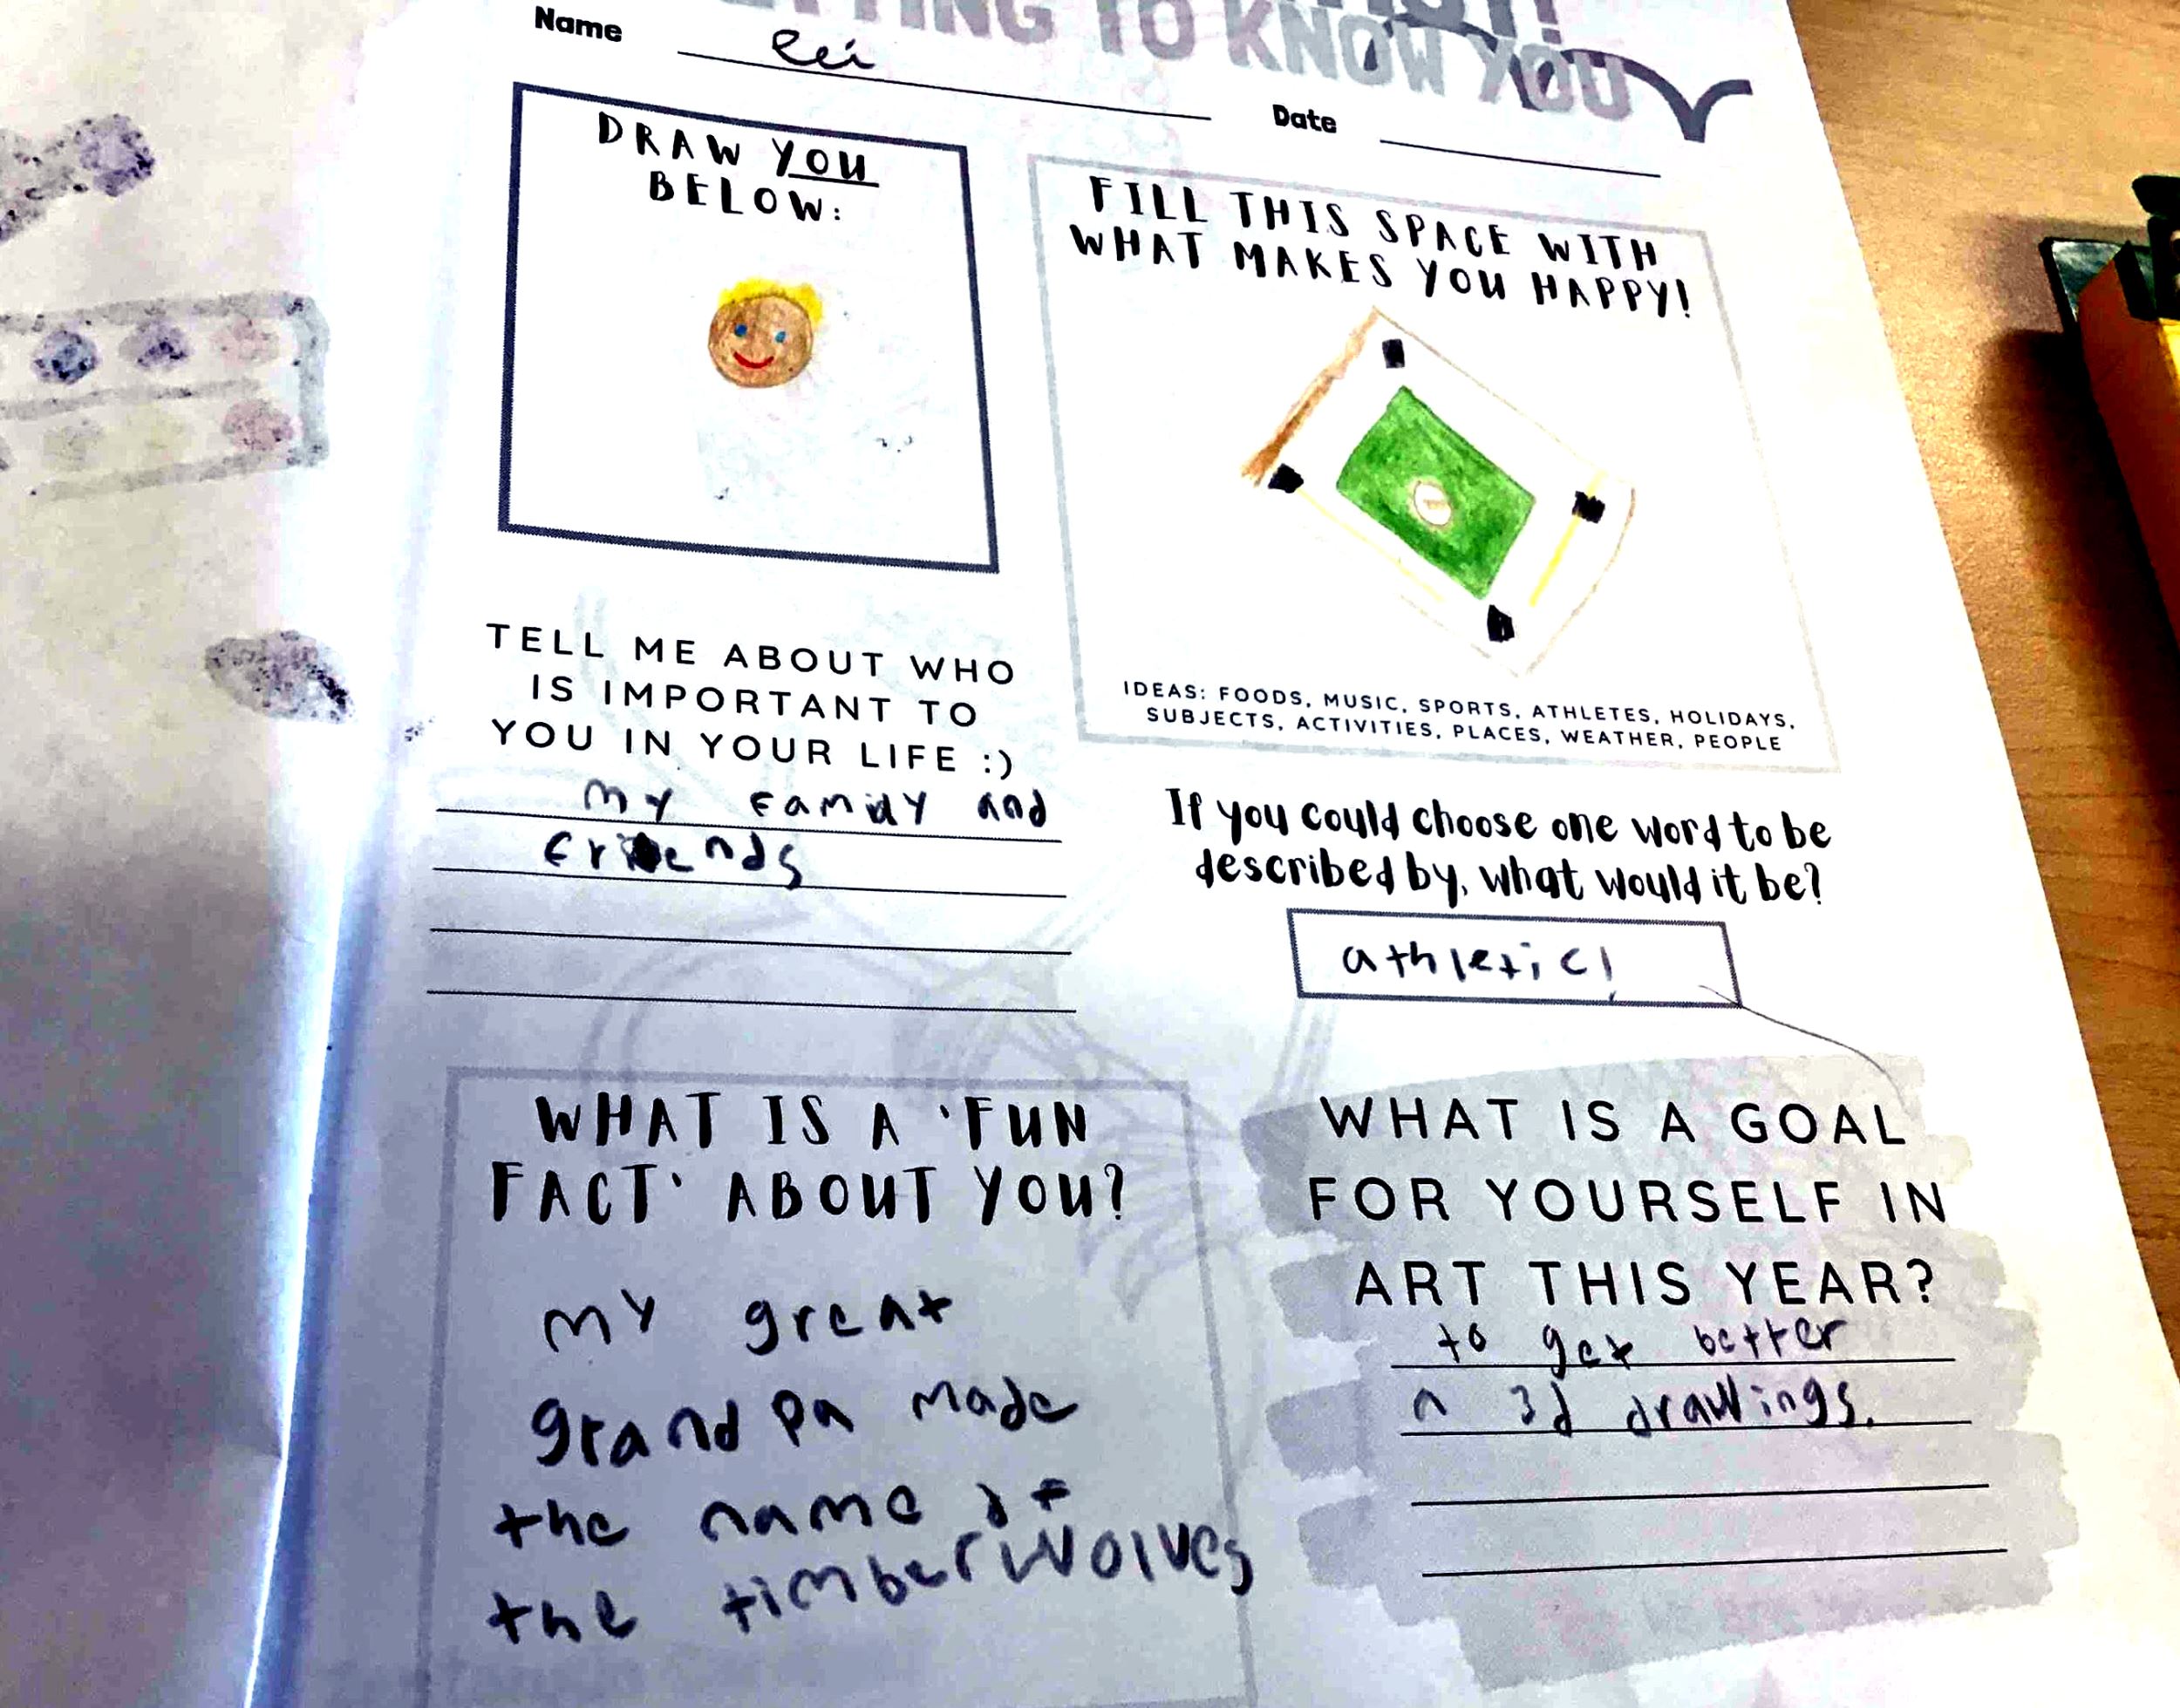 TO KNOW YOU
Name Rei
Date
DRAW YOU
BELOW:
FILL THIS SPACE WITH
WHAT MAKES YOU HAPPY!
IDEAS: FOODS, MUSIC, SPORTS, ATHLETES, HOLIDAYS,
SUBJECTS, ACTIVITIES, PLACES, WEATHER, PEOPLE
TELL ME ABOUT WHO
IS IMPORTANT TO
YOU IN YOUR LIFE :)
my Family and
Friends
If you could choose one word to be
described by, what would it be?
athletic!
WHAT IS A 'FUN
FACT' ABOUT YOU?
my great
grand pa made
the name of
the timberwolves
WHAT IS A GOAL
FOR YOURSELF IN
ART THIS YEAR?
to get better
n 3d drawings.